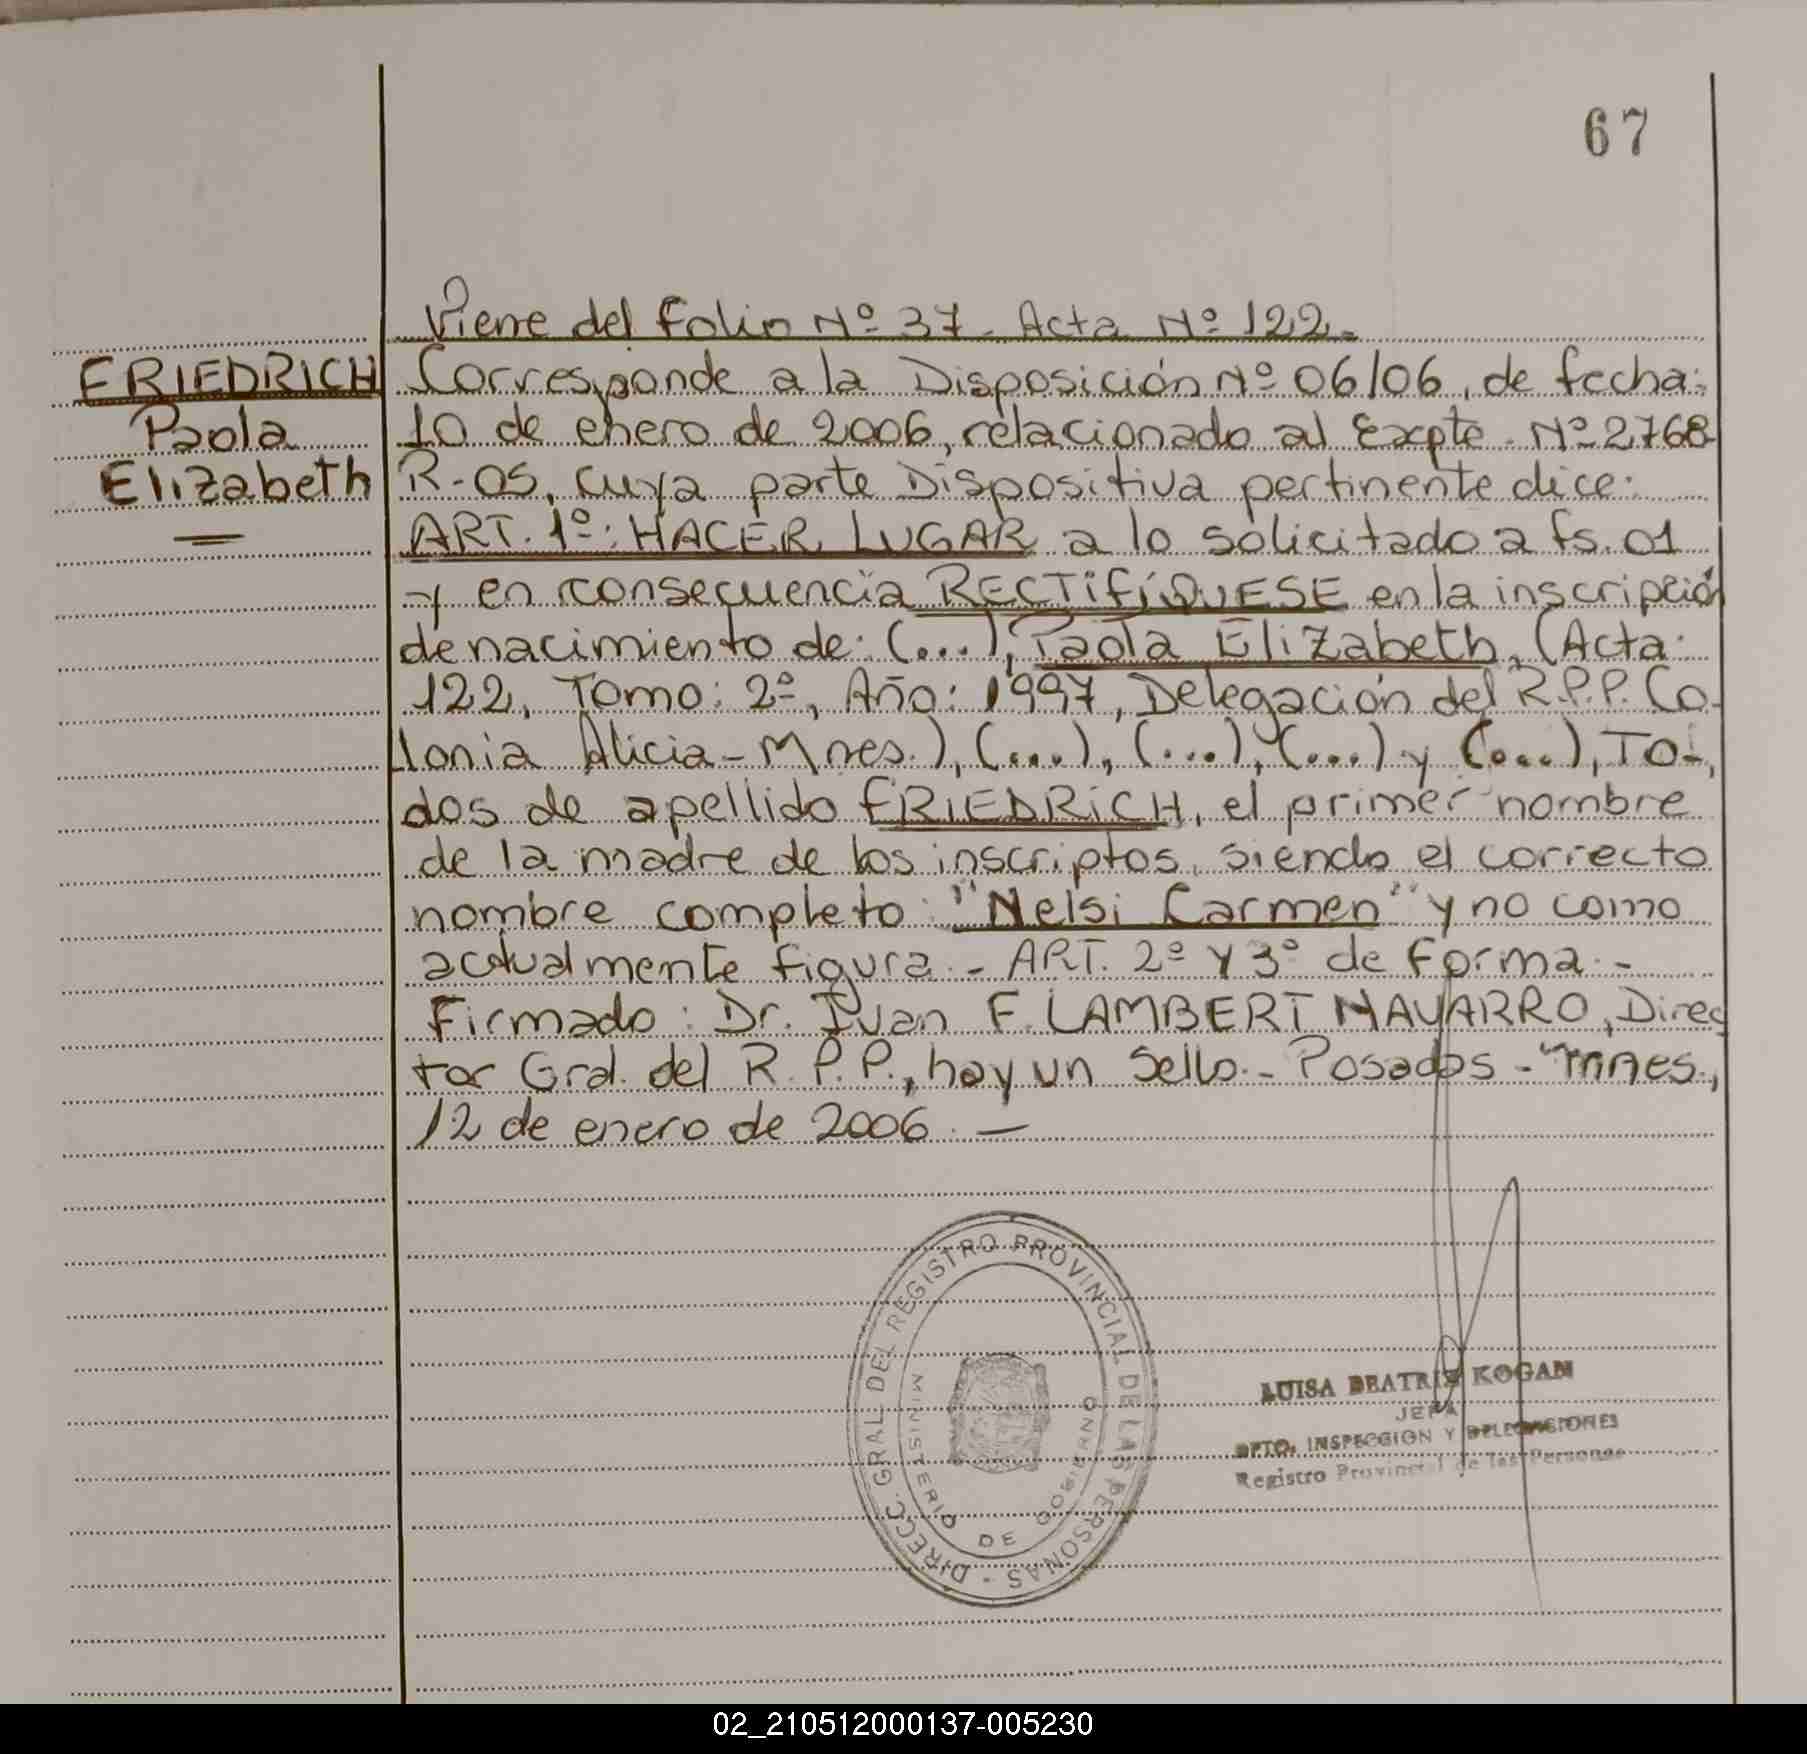 67
Viene del folio Nº 37 - Acta Nº 122.-
FRIEDRICH
Paola
Elizabeth
Corresponde a la Disposición Nº 06/06, de fecha:
10 de enero de 2006, relacionado al Expte. Nº 2768
R-05, cuya parte Dispositiva pertinente dice:
ART. 1º: HACER LUGAR a lo solicitado a fs. 01
y en consecuencia RECTIFÍQUESE en la inscripción
de nacimiento de: (...), Paola Elizabeth, (Acta:
122, Tomo: 2º, Año: 1997, Delegación del R.P.P. Co-
lonia Alicia - Mnes.), (...), (...), (...) y (...), TO-
dos de apellido FRIEDRICH, el primer nombre
de la madre de los inscriptos, siendo el correcto
nombre completo: "Nelsi Carmen" y no como
actualmente figura.- ART. 2º y 3º de forma.-
Firmado: Dr. Ivan F. LAMBERT NAVARRO, Direc
tor Gral. del R.P.P., hay un sello.- Posadas - Mnes.,
12 de enero de 2006.-
DIRECC. GRAL. DEL REGISTRO PROVINCIAL DE LAS PERSONAS -
MINISTERIO DE GOBIERNO
LUISA BEATRIZ KOGAN
JEFA
DPTO. INSPECCION Y DELEGACIONES
Registro Provincial de las Personas
02_210512000137-005230